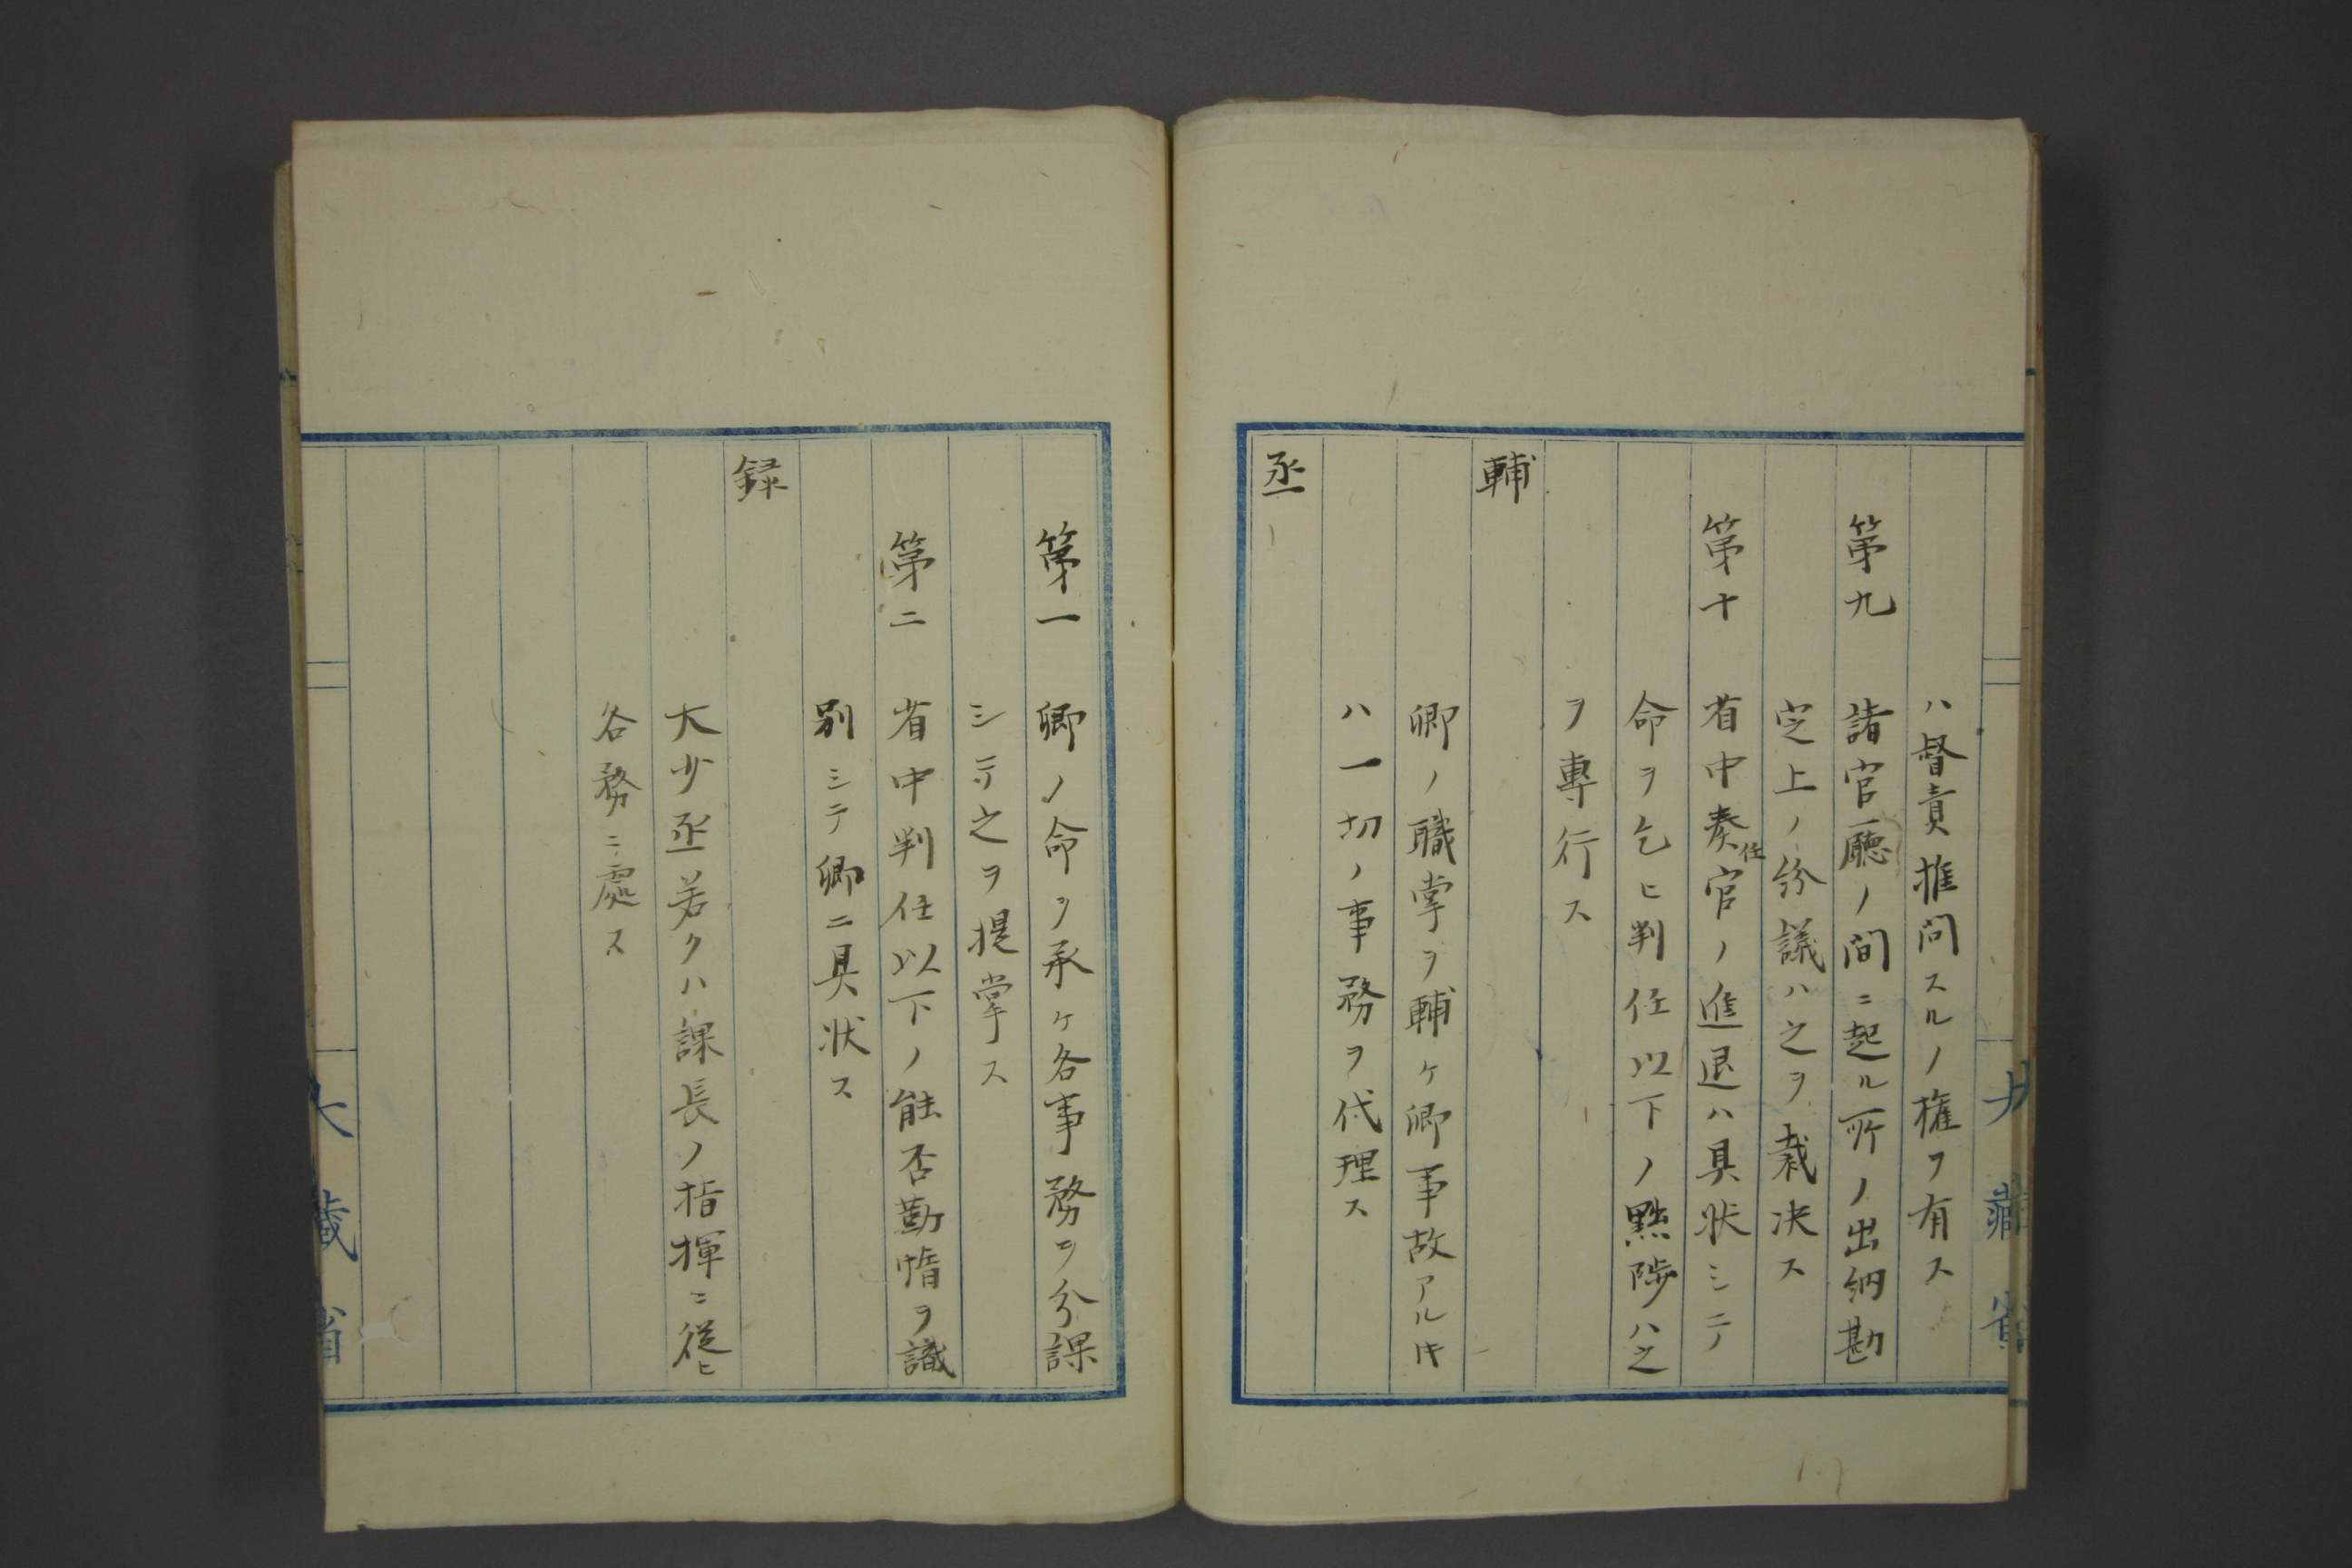 大藏省
ハ督責推問スルノ権ヲ有ス
第九 諸官廳ノ間ニ起ル所ノ出納勘
定上ノ紛議ハ之ヲ裁决ス
第十 省中奏任官ノ進退ハ具状シテ
命ヲ乞ヒ判任以下ノ黜陟ハ之
ヲ専行ス
輔
卿ノ職掌ヲ輔ケ卿事故アルキ
ハ一切ノ事務ヲ代理ス
丞
第一 卿ノ命ヲ承ケ各事務ヲ分課
シテ之ヲ提掌ス
第二 省中判任以下ノ能否勤惰ヲ識
別シテ卿ニ具状ス
録
大少丞若クハ課長ノ指揮ニ従ヒ
各務ニ處ス
大藏省